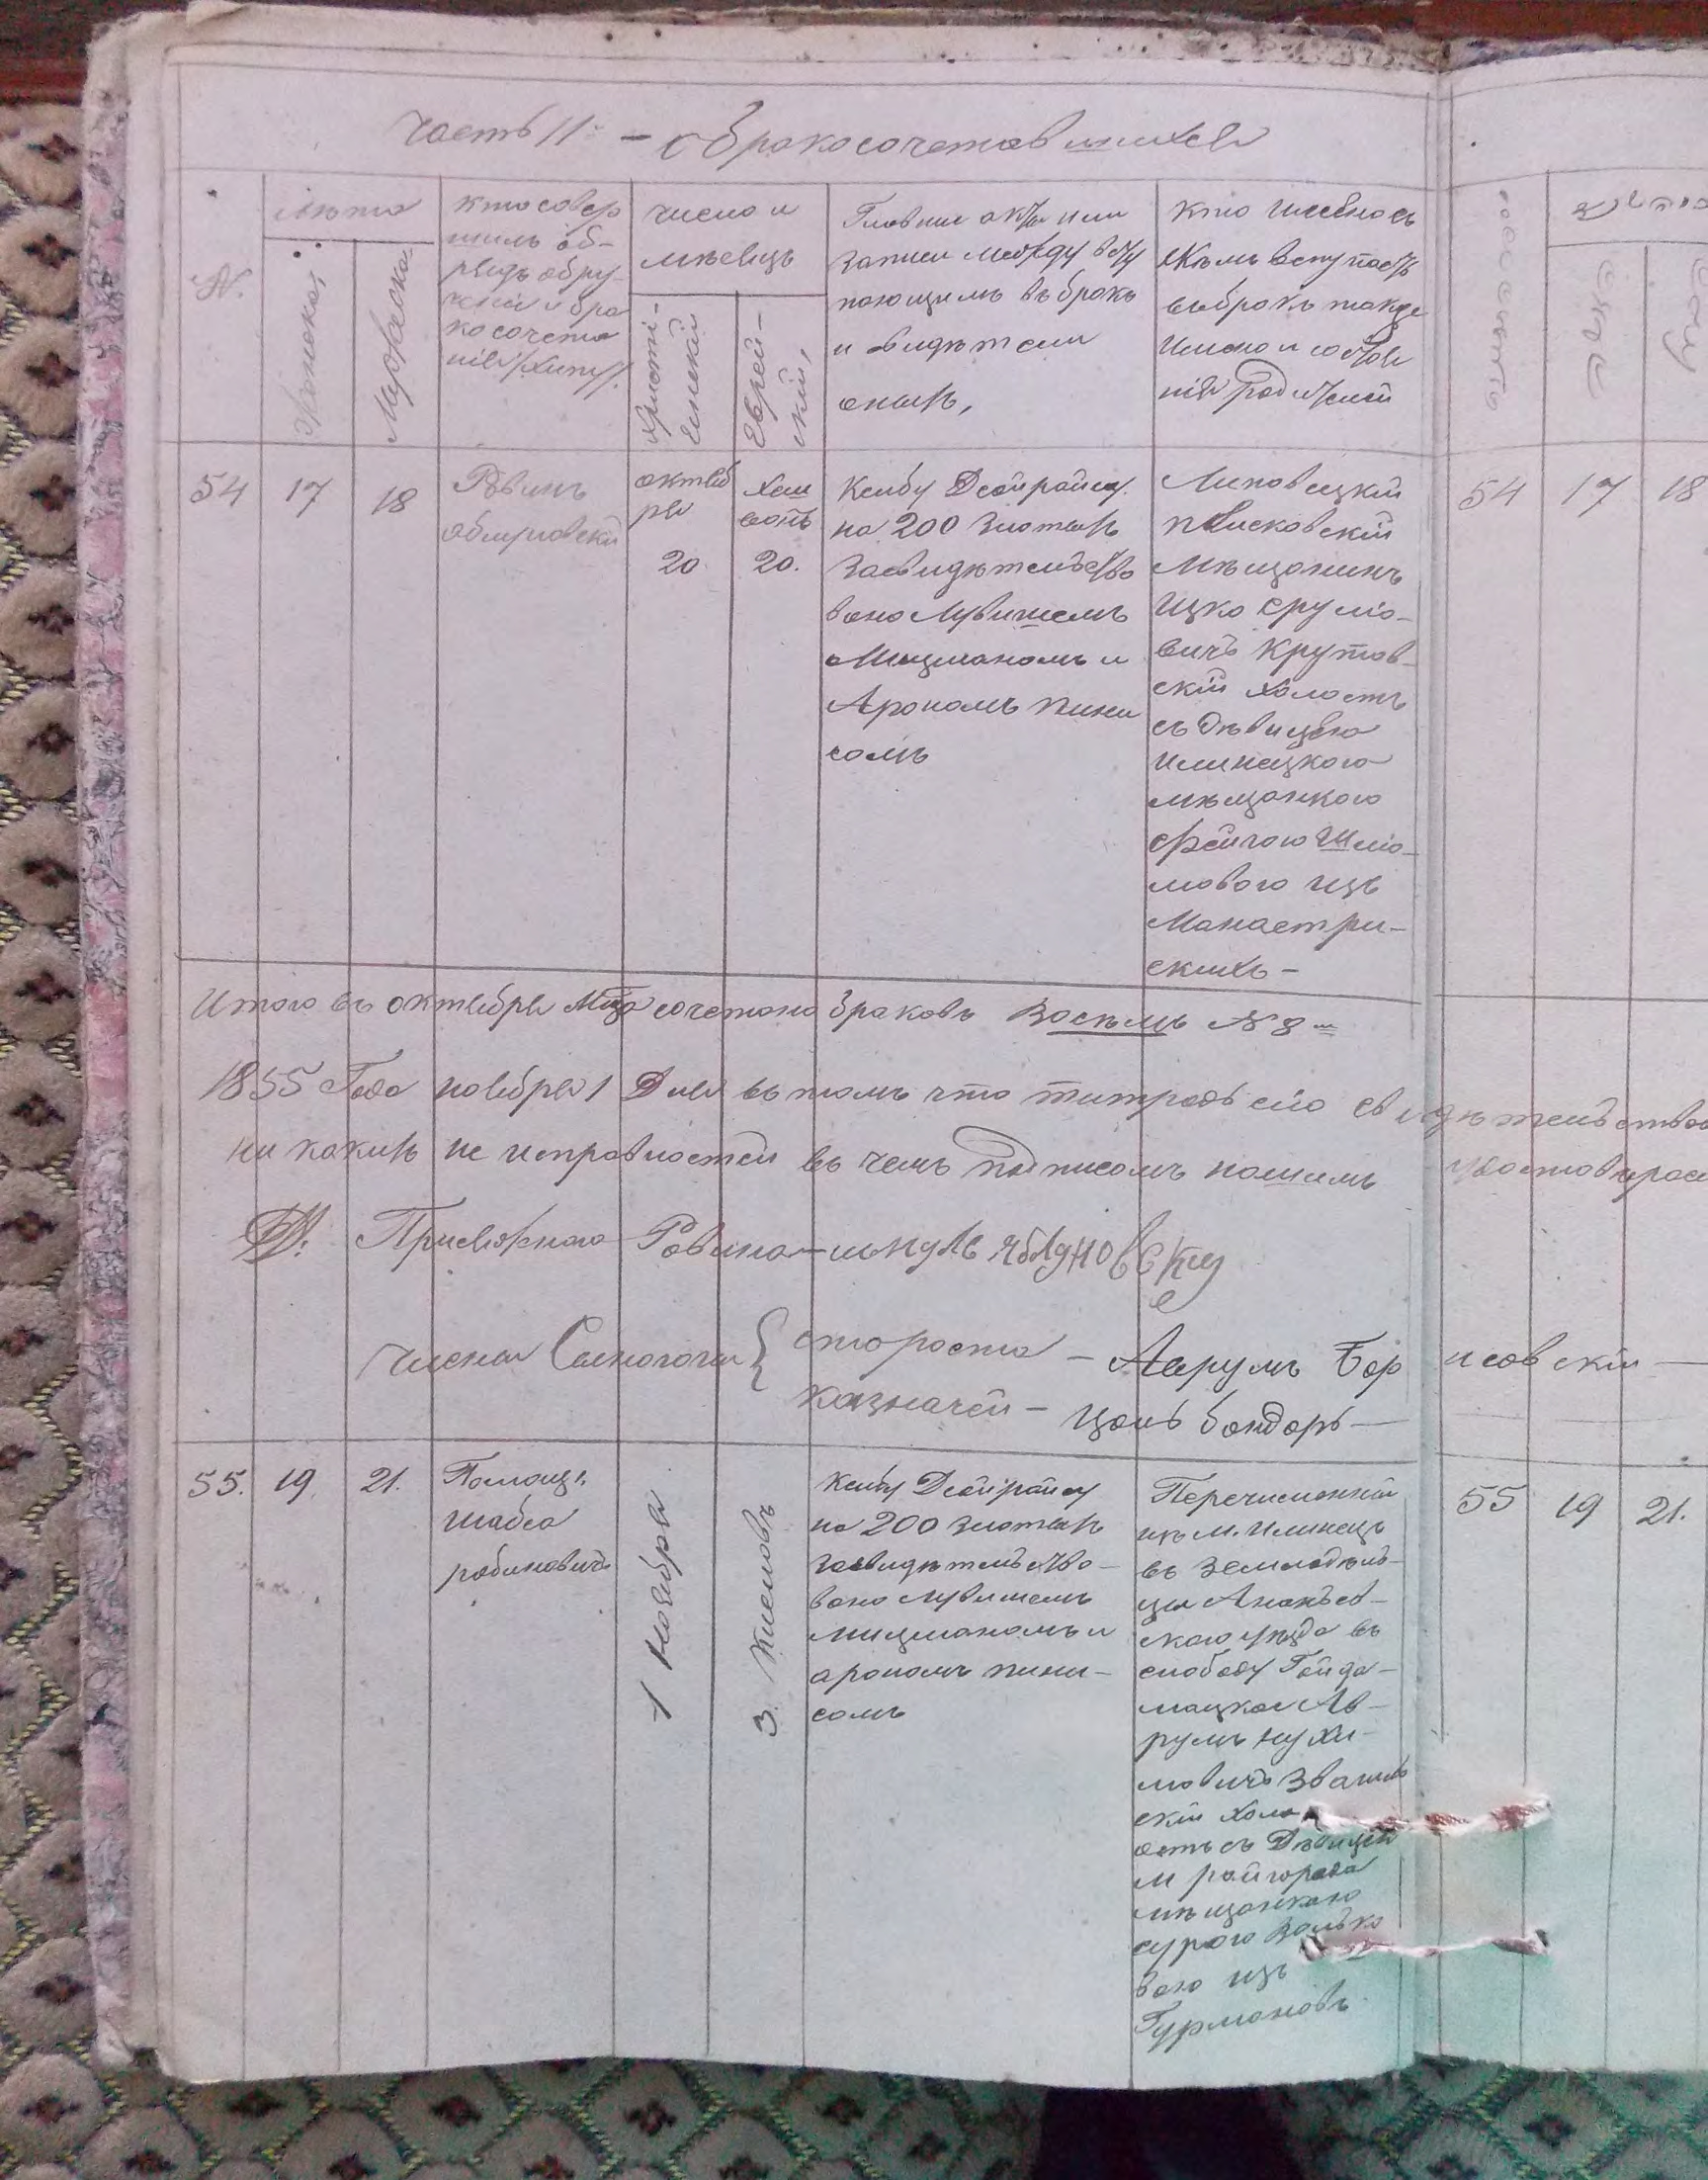 Часть II. – о бракосочетавшихся
№.
лѣта
Женская,
Мужеска.
кто совер
шилъ об-
рядъ обру-
ченія и бра
косочета
нія
число и
мѣсяцъ
Христі-
янскій
Еврей-
скій,
Главные акты или
записи между всту
пающимъ въ бракъ
и свидѣтели
оныхъ,
Кто имянно съ
кѣмъ вступаетъ
въ бракъ также
имяна и состоя
нія родителей
54
17
18
Равинъ
октяб
ря
20
Хеш
вонъ
20.
Ксибу
на 200 злотыхъ
засвидѣтельство
вано
Мицманомъ и
Арономъ пини
сомъ
Липовецкій
мѣщанинъ
Ицко Срулiо-
вичъ Крутов-
скій холостъ
съ дѣвицею
илинецкого
мѣщанкою
Фейгою Шлiо-
мовою изъ
Манастри-
скихъ –
Итого въ октябрѣ Мцѣ сочетано браковъ Восѣмь № 8
1855 Года ноября 1 Дня въ томъ что титрадь сію свидѣтельство
ни какихъ не исправностей въ чемъ подписомъ нашимъ удостовѣряем
Присяжного Равина –
члены Синогоги { староста – Аврумъ Бор исовскій —
казначей – бондарь —
55.
19.
21.
Помощ:
Шабса
рабиновичъ
1 Ноября
3. Кислювъ
Ксибу
на 200 злотыхъ
засвидѣтельство-
вано
мицманомъ и
арономъ пини-
сомъ
Перечисленный
изъ М. Илинецъ
въ земледѣль-
цы Ананьев-
ского уѣзда въ
слободу Гайда-
мацкая Ав-
румъ Нухи-
мовичъ
скій холо
остъ съ Дѣвицею
м райгорода
мѣщанкою
сурою Волько
вою изъ
Гурмановъ
54
17
18
55
19
21.